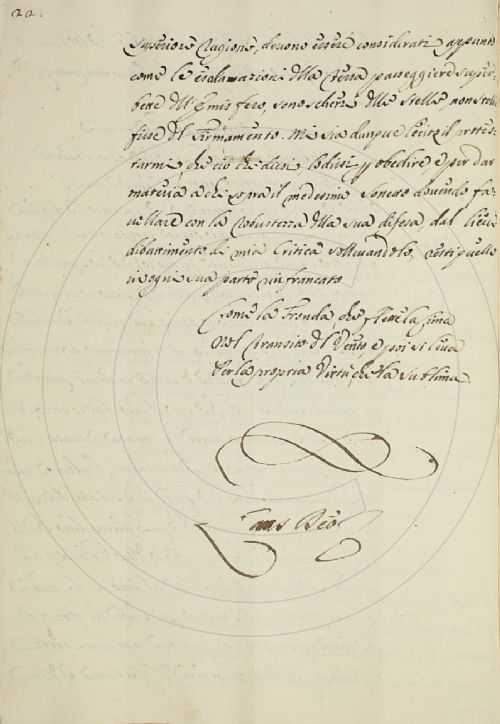 22.
superiore Ragione, devono essere considerati appunto
come le esalazioni della terra passeggiere
dell' Emisfero, sono scherzi delle stelle, non stelle
fisse del Firmamento. Mi sia dunque lecito il protes-
tarmi, che ciò che dissi lo dissi p obedire e per dar
materia a chi sopra il medesimo Soneto dovendo fa-
vellare con la Robustezza della sua difesa dal lieve
dibattimento di mia Critica sollevandolo, resti quello
in ogni sua parte rinfrancato
Come la Fronda, che flette la cima
Nel transito del Vento, e poi si leva
Per la propria Virtù, che la sublima.
Laus Deo